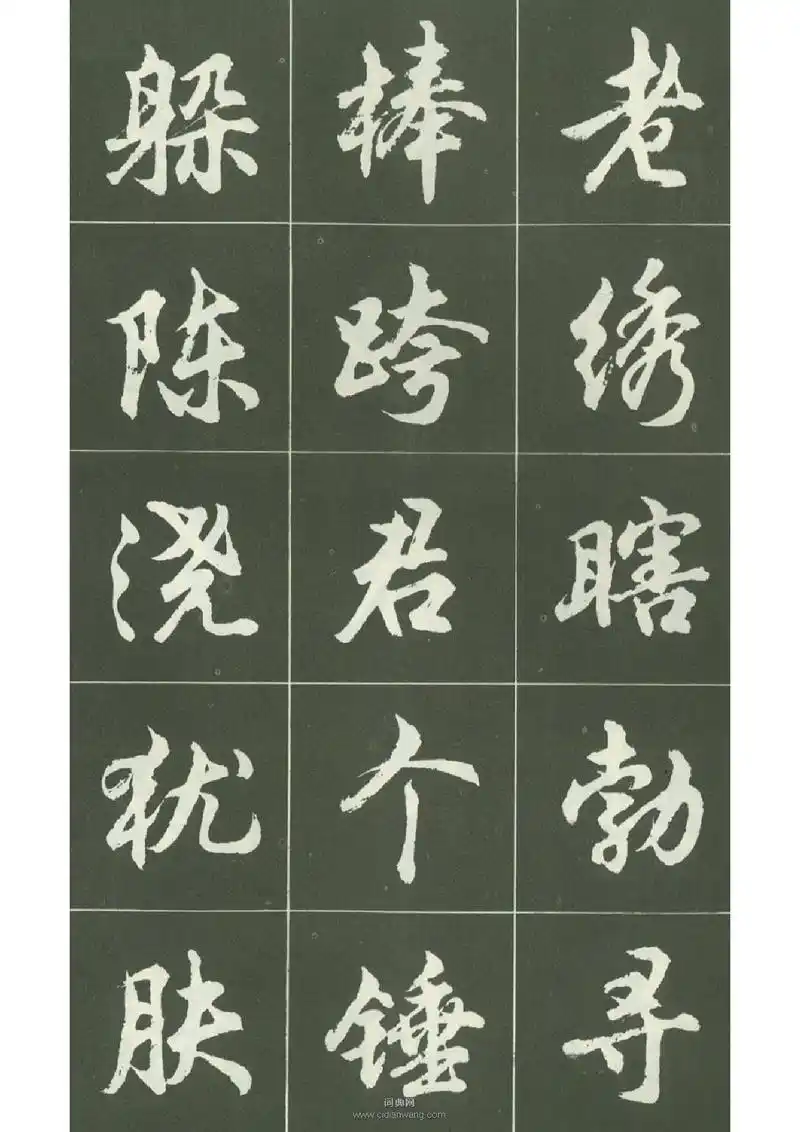 老绣瞎勃寻
棒跨君个锤
躲陈浇犹肤
词典网
www.cidianwang.com